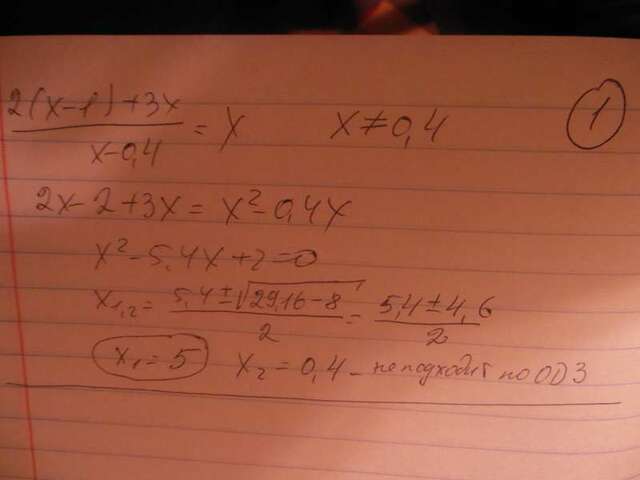 (2(x-1)+3x)/(x-0,4) = x    x≠0,4    1
2x-2+3x = x²-0,4x
x²-5,4x+2=0
x₁,₂ = (5,4±√(29,16-8))/2 = (5,4±4,6)/2
x₁=5    x₂=0,4 - не подходит по ОДЗ